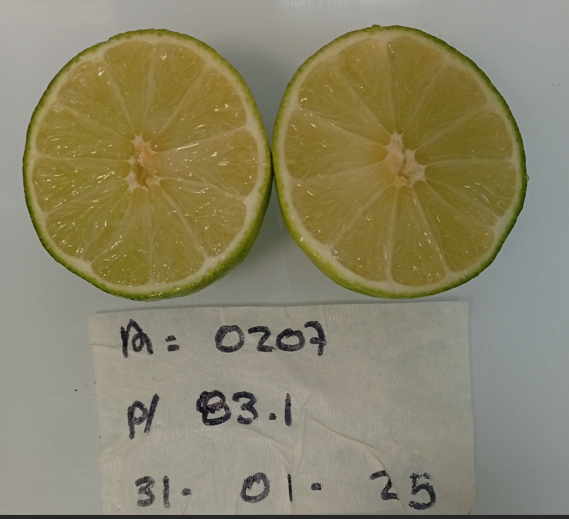 A= 0207
P/ 83.1
31. 01. 25